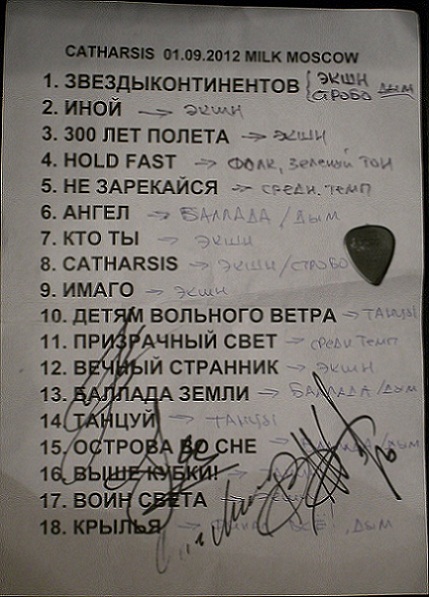 CATHARSIS 01.09.2012 MILK MOSCOW
1. ЗВЕЗДЫКОНТИНЕНТОВ { ЭКШН СТРОБО ДЫМ
2. ИНОЙ → ЭКШН
3. 300 ЛЕТ ПОЛЕТА → ЭКШН
4. HOLD FAST → ФОЛК, ЗЕЛЕНЫЙ ТОН
5. НЕ ЗАРЕКАЙСЯ → СРЕДН. ТЕМП
6. АНГЕЛ → БАЛЛАДА / ДЫМ
7. КТО ТЫ → ЭКШН
8. CATHARSIS → ЭКШН/СТРОБО
9. ИМАГО → ЭКШН
10. ДЕТЯМ ВОЛЬНОГО ВЕТРА → ТАНЦЫ
11. ПРИЗРАЧНЫЙ СВЕТ → СРЕДН ТЕМП
12. ВЕЧНЫЙ СТРАННИК → ЭКШН
13. БАЛЛАДА ЗЕМЛИ → БАЛЛАДА/ДЫМ
14. ТАНЦУЙ → ТАНЦЫ
15. ОСТРОВА ВО СНЕ → БАЛЛАДА/ДЫМ
16. ВЫШЕ КУБКИ! →
17. ВОИН СВЕТА → ЭКШН
18. КРЫЛЬЯ → ВСЁ!, ДЫМ